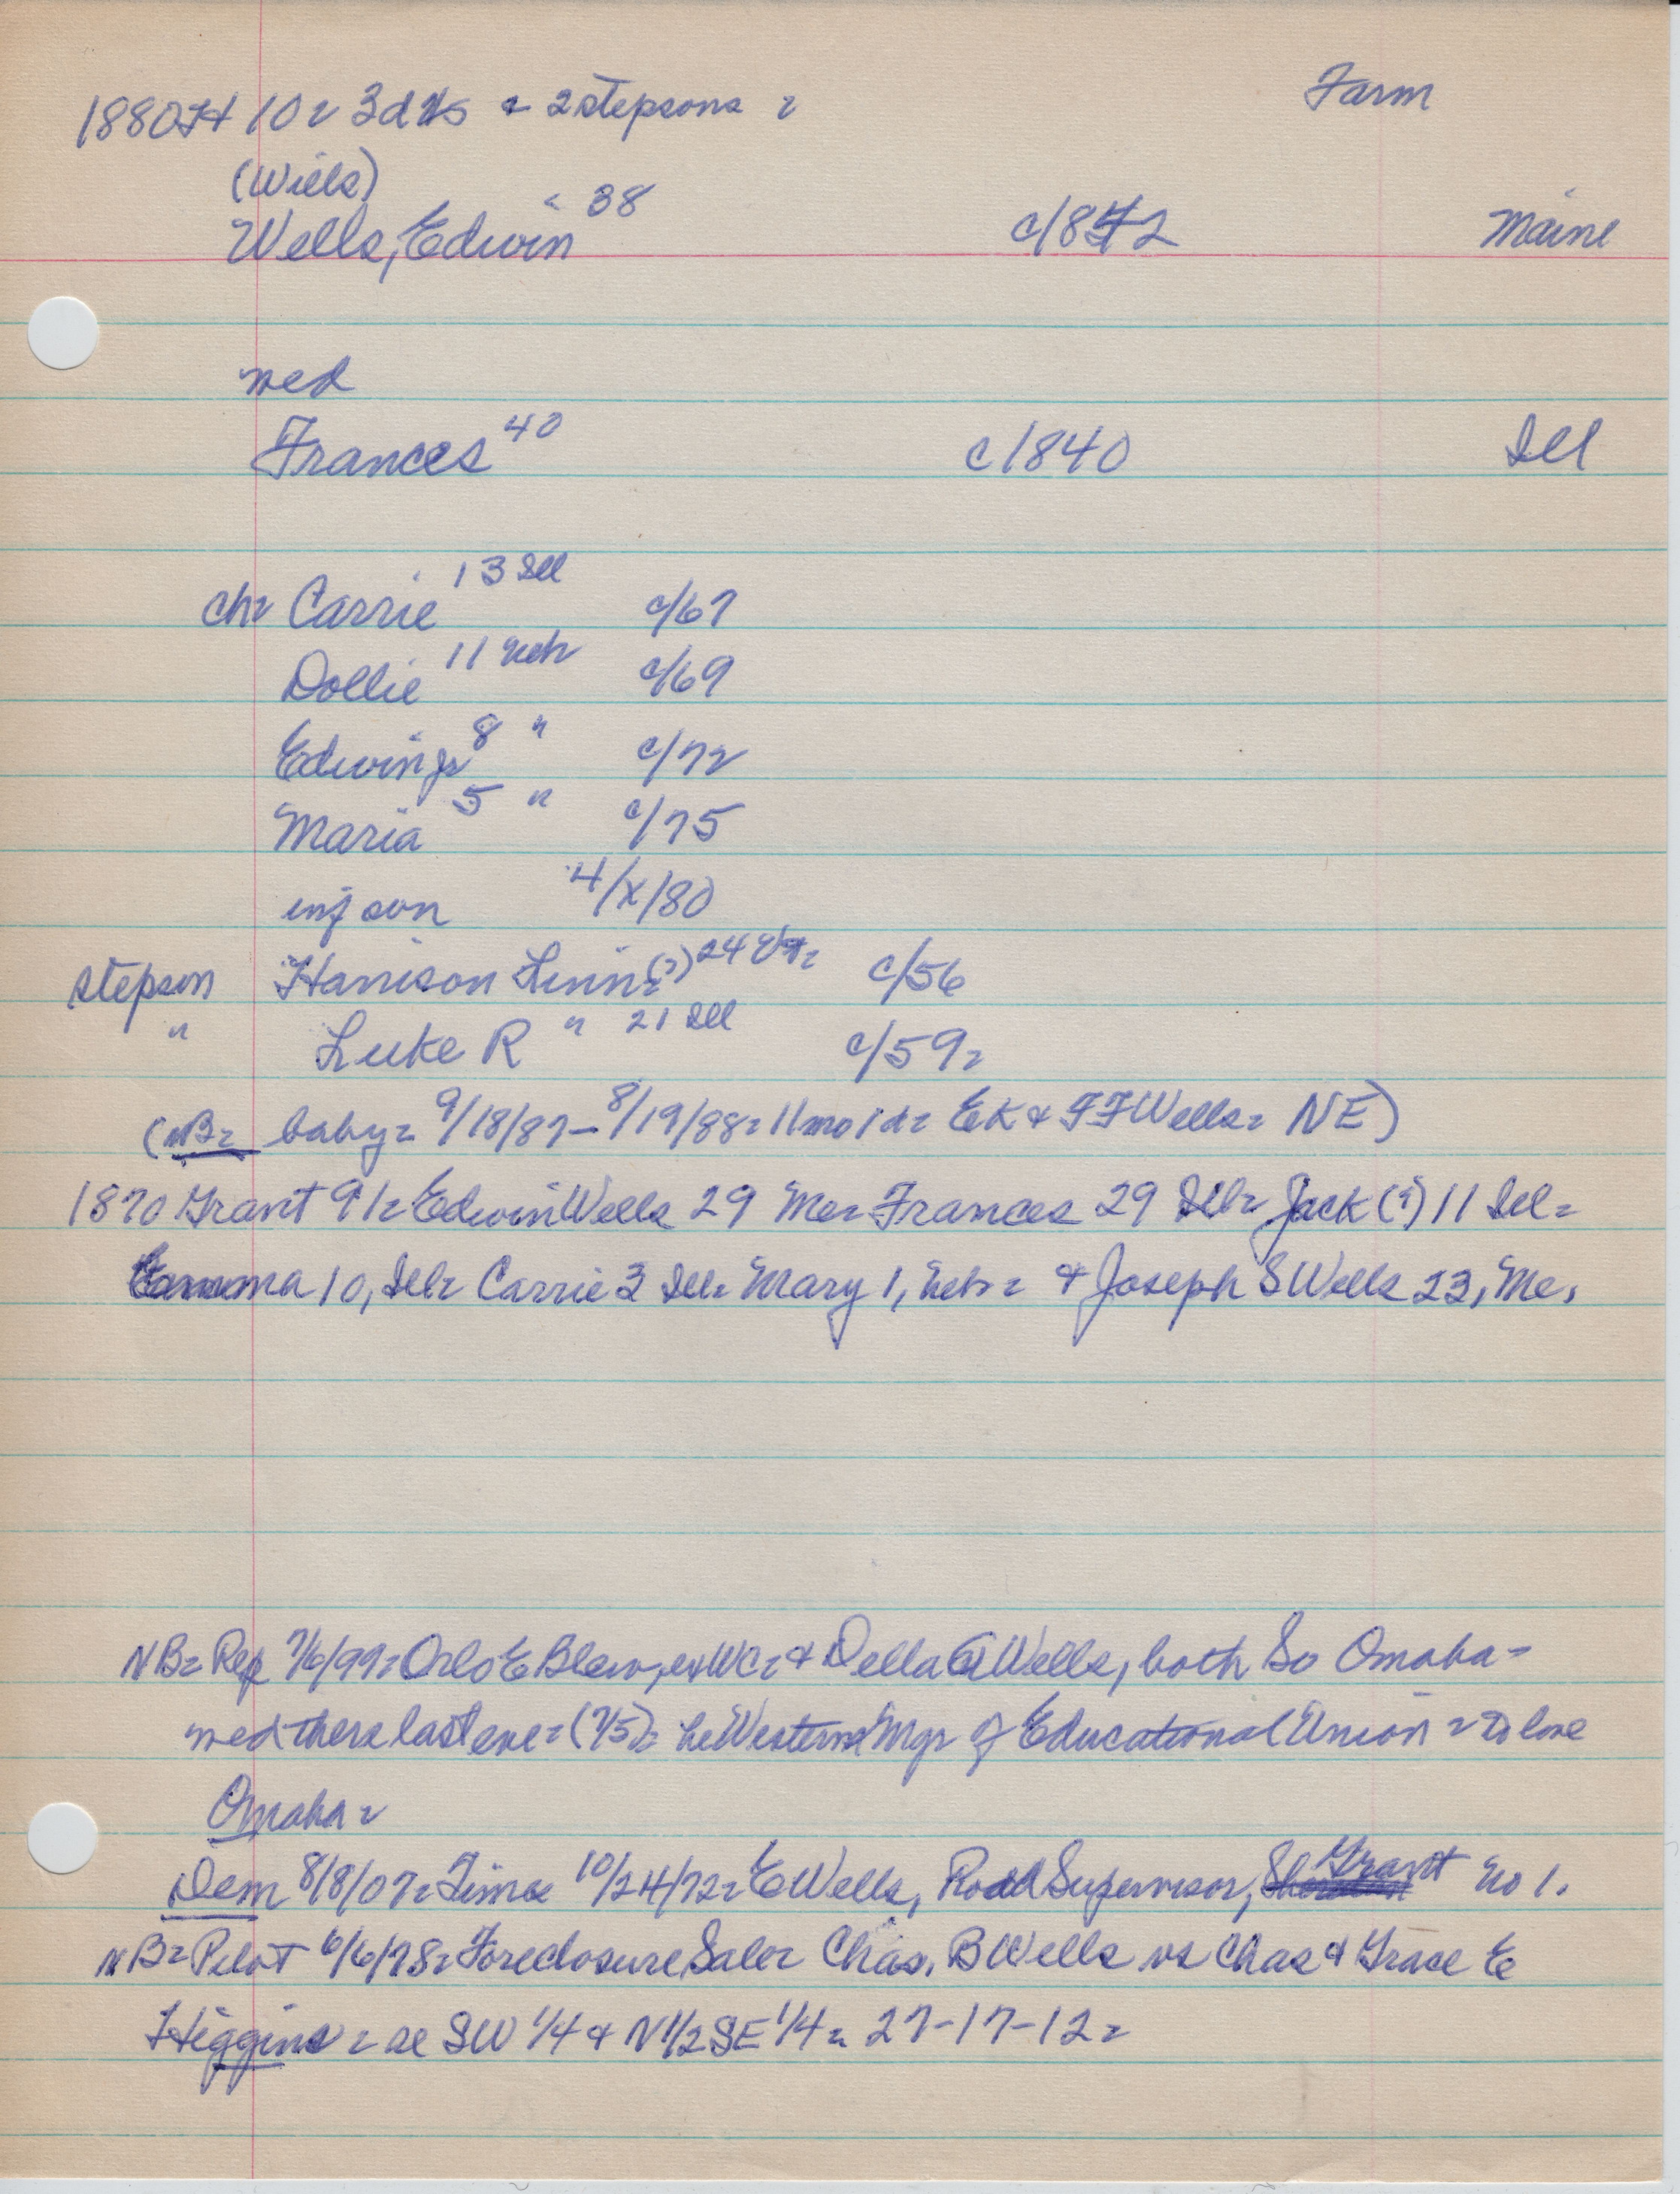 1880 Ft 10 = 3 dts & 2 stepsons = Farm
(Wills)
Wells, Edwin 38 c/842 Maine
med
Frances 40 c1840 Ill
ch= Carrie 13 Ill c/67
Dollie 11 Neb c/69
Edwin Jr 8 " c/72
Maria 5 " c/75
inf son 4/x/80
stepson Harrison Linn= (?) 24 c/56
" Luke R " 21 Ill c/59=
(NB= baby= 9/18/87-8/19/88= 11mo 1d= EK & FF Wells= NE)
1870 Grant 91= Edwin Wells 29 Me= Frances 29 Ill= Jack (?) 11 Ill=
Emma 10, Ill= Carrie 3 Ill= Mary 1, Neb= & Joseph S Wells 23, Me.
NB= Rep 7/6/99= Orlo E Blew, ex WC= & Della A Wells, both So Omaha=
med there last eve= (7/5)= he Western Mgr of Educational Union = to live
Omaha=
Dem 8/8/07= Times 10/24/72= E Wells, Road Supervisor, Grant No 1.
NB= Pilot 6/6/78= Foreclosure Sale= Chas. B Wells vs Chas & Grace E
Higgins = al SW 1/4 & N1/2 SE 1/4= 27-17-12=